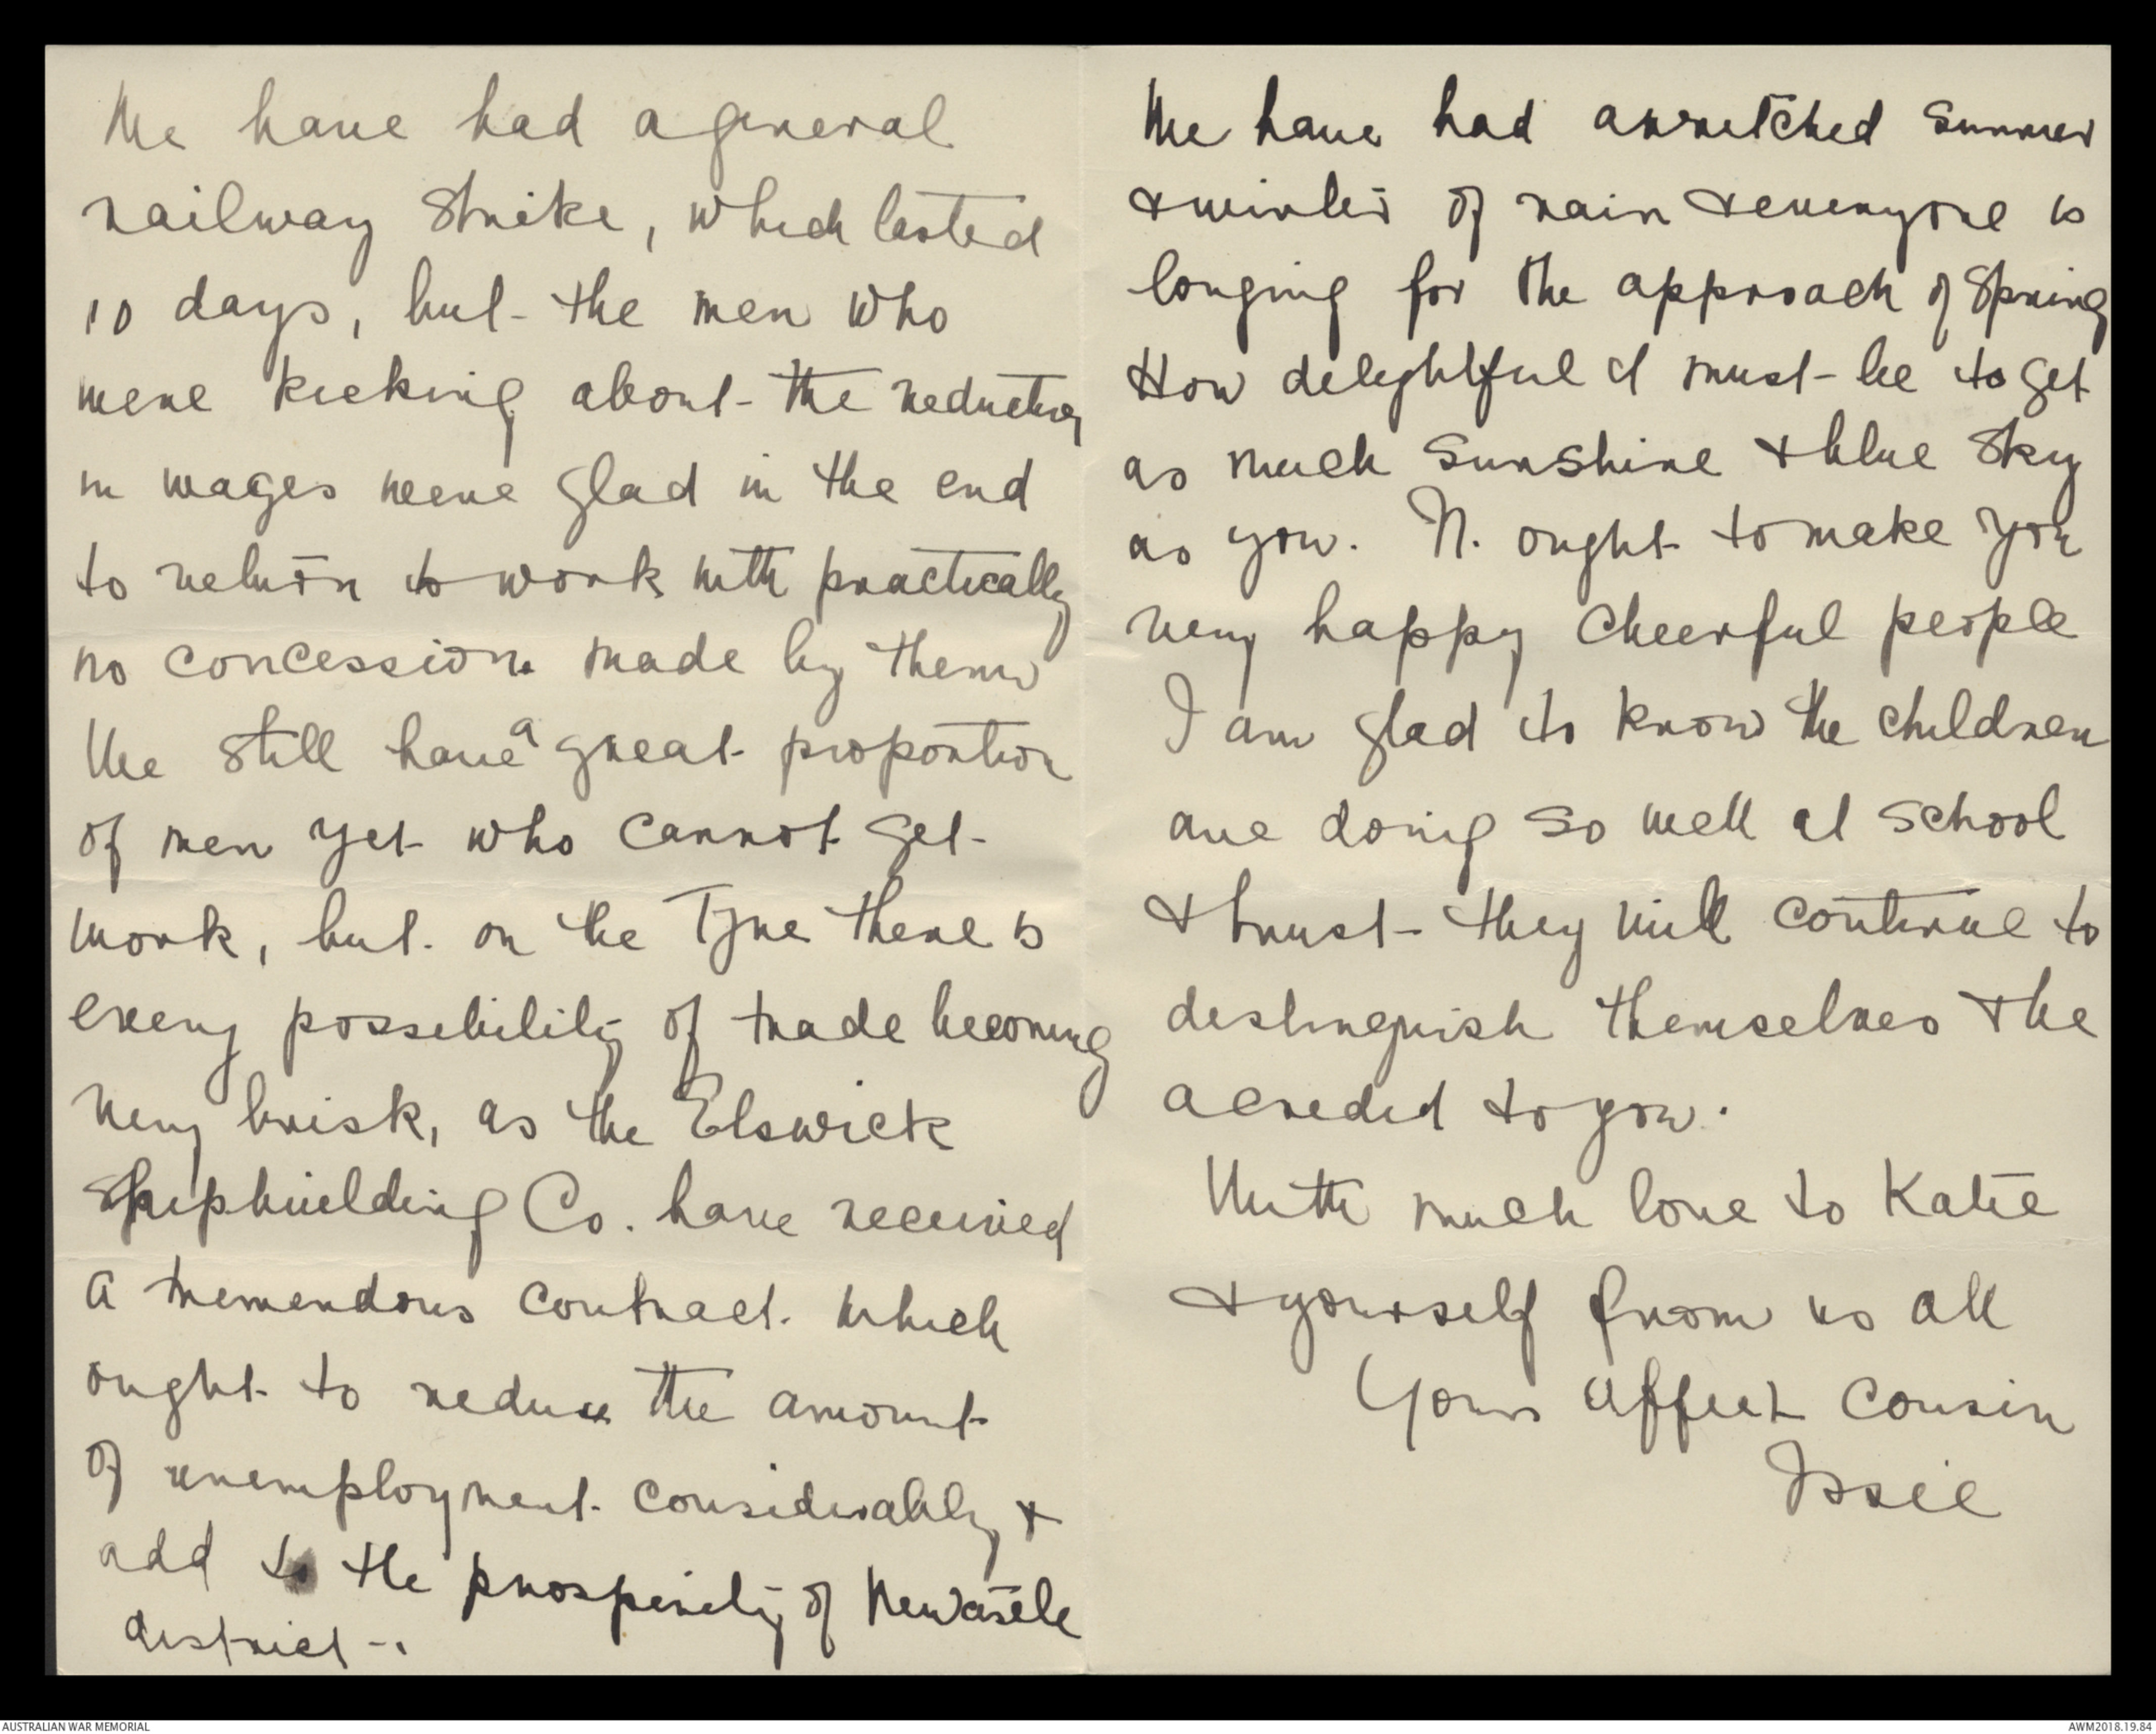 We have had a general
railway strike, which lasted
10 days, but the men who
were kicking about the reduction
in wages were glad in the end
to return to work with practically
no concession made by them
We still have a great proportion
of men yet who cannot get
work, but on the Tyne there is
every possibility of trade becoming
very brisk, as the Elswick
Shipbuilding Co. have received
a tremendous contract which
ought to reduce the amount
of unemployment considerably &
add to the prosperity of Newcastle
district -.
We have had a wretched summer
& winter of rain & everyone is
longing for the approach of Spring
How delightful it must be to get
as much sunshine & blue sky
as you. It ought to make you
very happy cheerful people
I am glad to know the children
are doing so well at school
& trust they will continue to
distinguish themselves & be
a credit to you.
With much love to Katie
& yourself from us all
Yours affect cousin
Issie
AUSTRALIAN WAR MEMORIAL
AWM2018.19.84